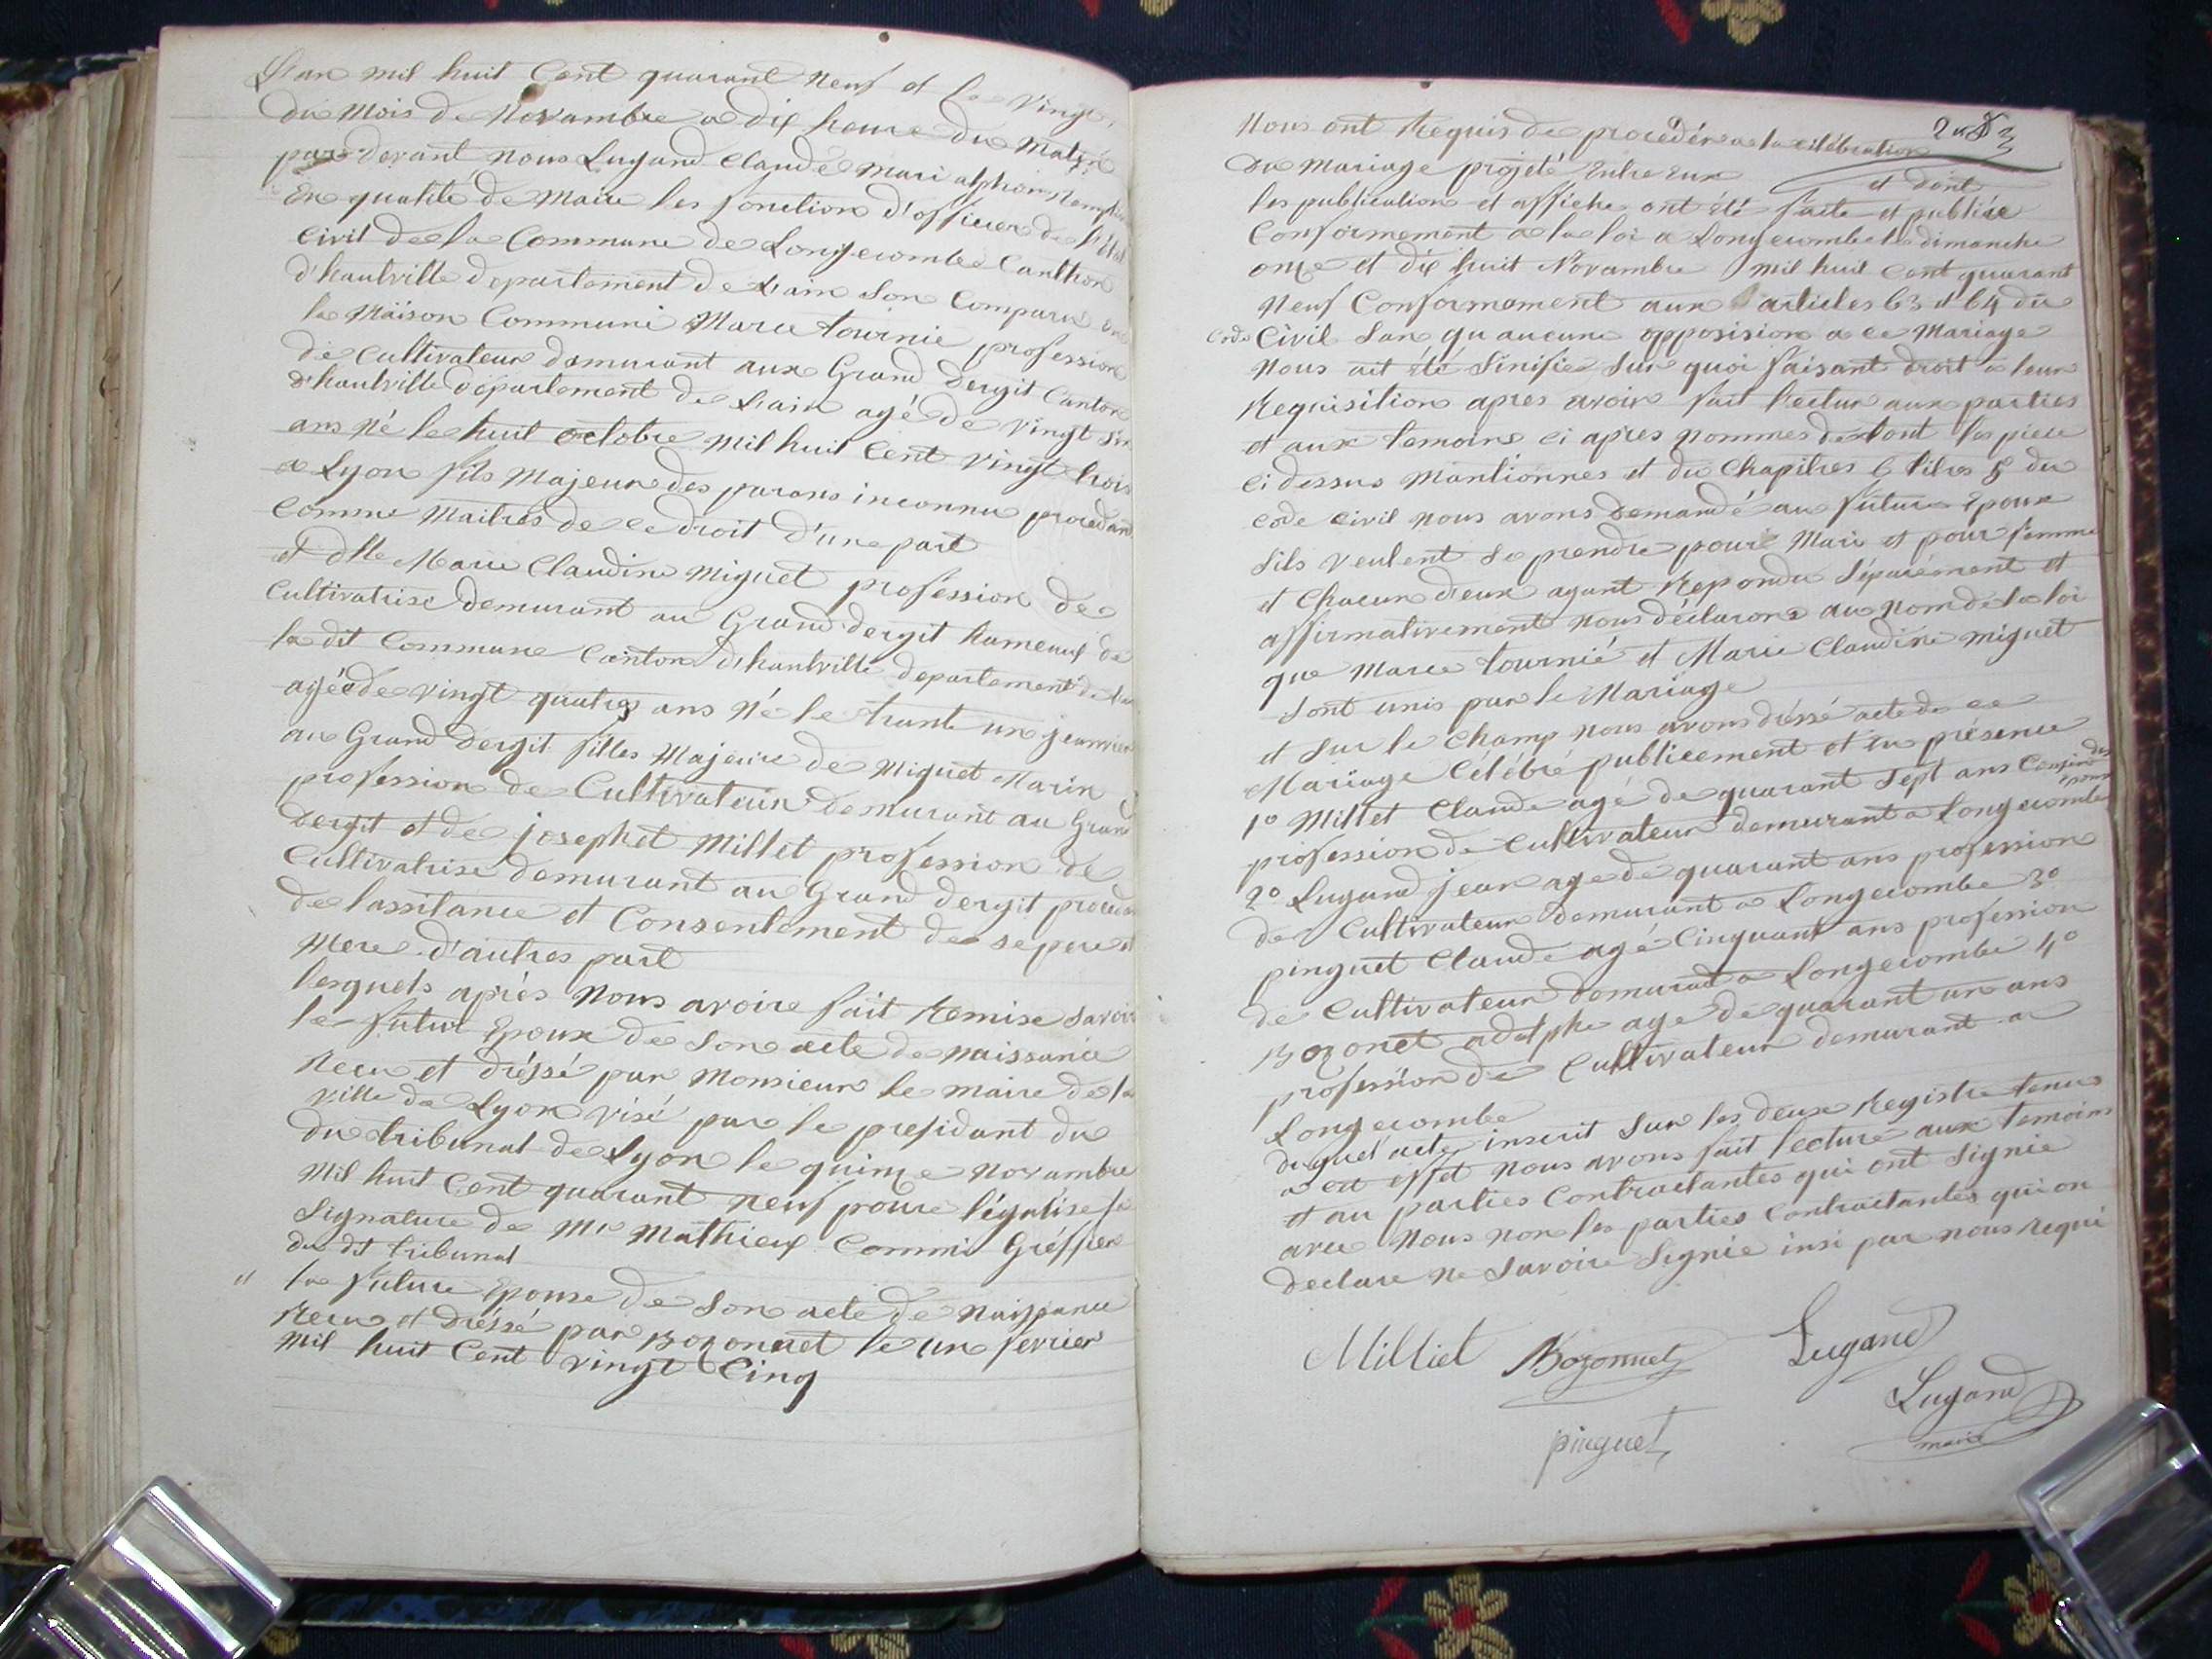 L'an mil huit Cent quarant Neuf et le vingt
du Mois de Novambre a dix heure du Matin
par devant nous Lugand Claude Mari alphons
En qualité de Maire les fonction d'officier de l'état
civil de la Commune de Longecombe Canthon
d'hautville departement de l'ain Son Comparu en
la Maison Communi Marce tournie profession
de Cultivateur demurant aux Grand dergit Canton
d'hautville departement de L'ain agé de vingt six
ans Né le huit octobre Mil huit Cent vingt trois
a Lyon fils Majeur des parans inconnu procedant
Comme Maitres de ce droit d'une part
et dlle Marie Claudine Miguet profession de
Cultivatrise demurant au Grand dergit hameaux de
la dit Commune Canton d'hautville departement de
agée de vingt quatres ans Né le trante un janvier
au Grand dergit filles Majeure de Miguet Marin
profession de Cultivateur demurant au Grand
dergit et de josephet Millet profession de
Cultivatrise demurant au Grand dergit
de lassitance et Consentement de se pere et
Mere d'autres part
lesquels après Nous avoire fait Remise Savoir
le futur Epoux de Son acte de Naissance
Recu et dréssé par Monsieur le maire de la
ville de Lyon visé par le presidant du
du tribunal de Lyon le quinze Novambre
Mil huit Cent quarant neuf pour légalise la
Signature de Mr Mathieux Commis Gréffier
du dit tribunal
" la future Epouse de Son acte de Naissance
Recu et dréssé par Bozonnet le un fevrier
Mil huit Cent vingt Cinq
Nous ont Requis de procédér a la célébration
du Mariage projeté Entre Eux
et dont
les publication et affiche ont été faite et publiée
Conformement a la loi a Longecombe le dimanche
onze et dix huit Novambre Mil huit Cent quarant
Neuf Conformement aux articles 63 et 64 du
Code Civil San qu aucune opposision a ce Mariage
Nous ait été Sinifie Sur quoi faisant droit a leur
Requisition apres avoir fait lectur aux parties
et aux temoins ci apres nommes de tout les piece
ci dessus Mantionnes et du Chapitres 6 titres 5 du
code civil nous avons demandé au future Epoux
Sils veulent Se prendre pour Mari et pour femme
et Chacun d'eux ayant Repondu Séparément et
affirmativement nous déclarons au Nom de la loi
que Marce tournié et Marie Claudine Miguet
Sont unis par le Mariage
et Sur le Champ nous avons dréssé acte de ce
Mariage Célébré publicement et en présence
1° Millet Claude agé de quarant Sept ans Cousin
profession de Cultivateur demurant a Longecombe
2° Lugand jean age de quarant ans profession
de Cultivateur demurant a Longecombe 3°
pinguet Claude agé Cinquant ans profession
de Cultivateur demurat a Longecombe 4°
Bozonet adelphe age de quarant un ans
profession de Cultivateur demurant a
Longecombe
duquel acte inscrit Sur les deux Registre tenus
a cet effet nous avons fait lecture aux temoins
et au parties Contractantes qui ont Signie
avec Nous non les parties Contractantes qui on
declare Ne Savoire Signie insi par nous requi
Milliet Bozonnet Lugand
Lugand
maire
pinguet